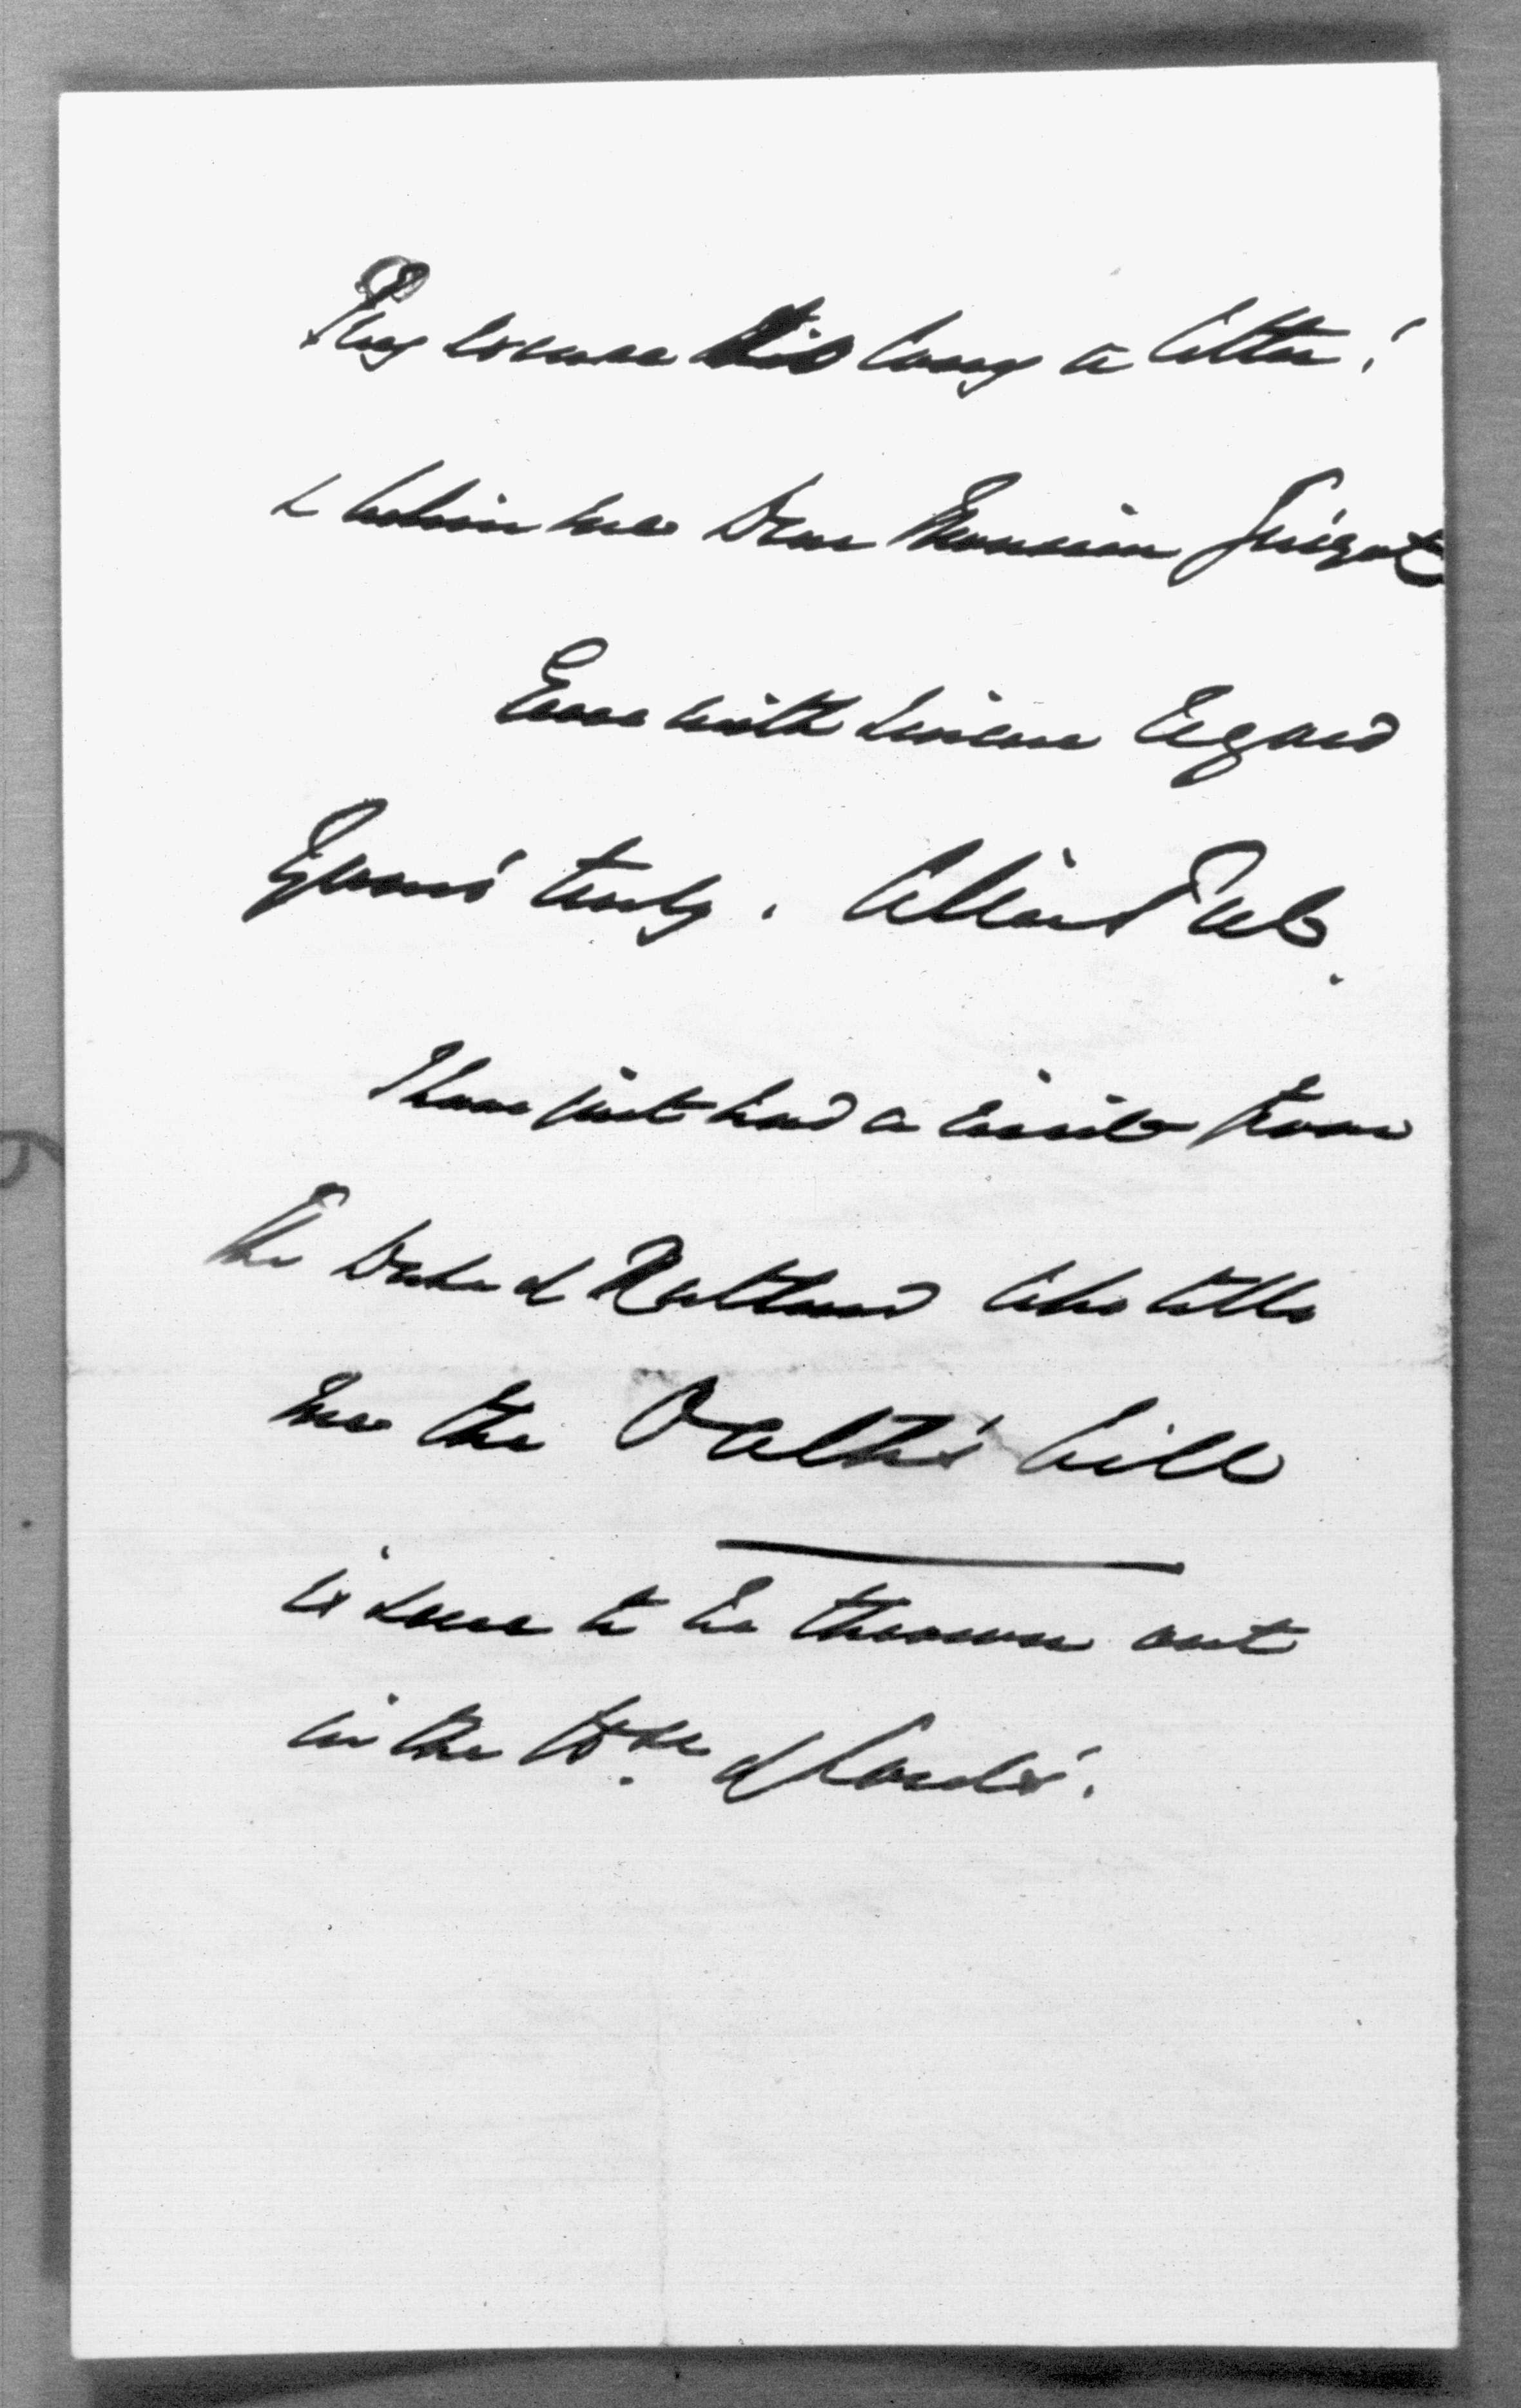 Pray excuse this long a letter!
& believe me Dear Monsieur Guizot
Ever with sincere regard
Yours truly.
I have just had a visit from
the Duke of Rutland who tells
me the Oath's bill
is sure to be thrown out
in the Hse of Lords.